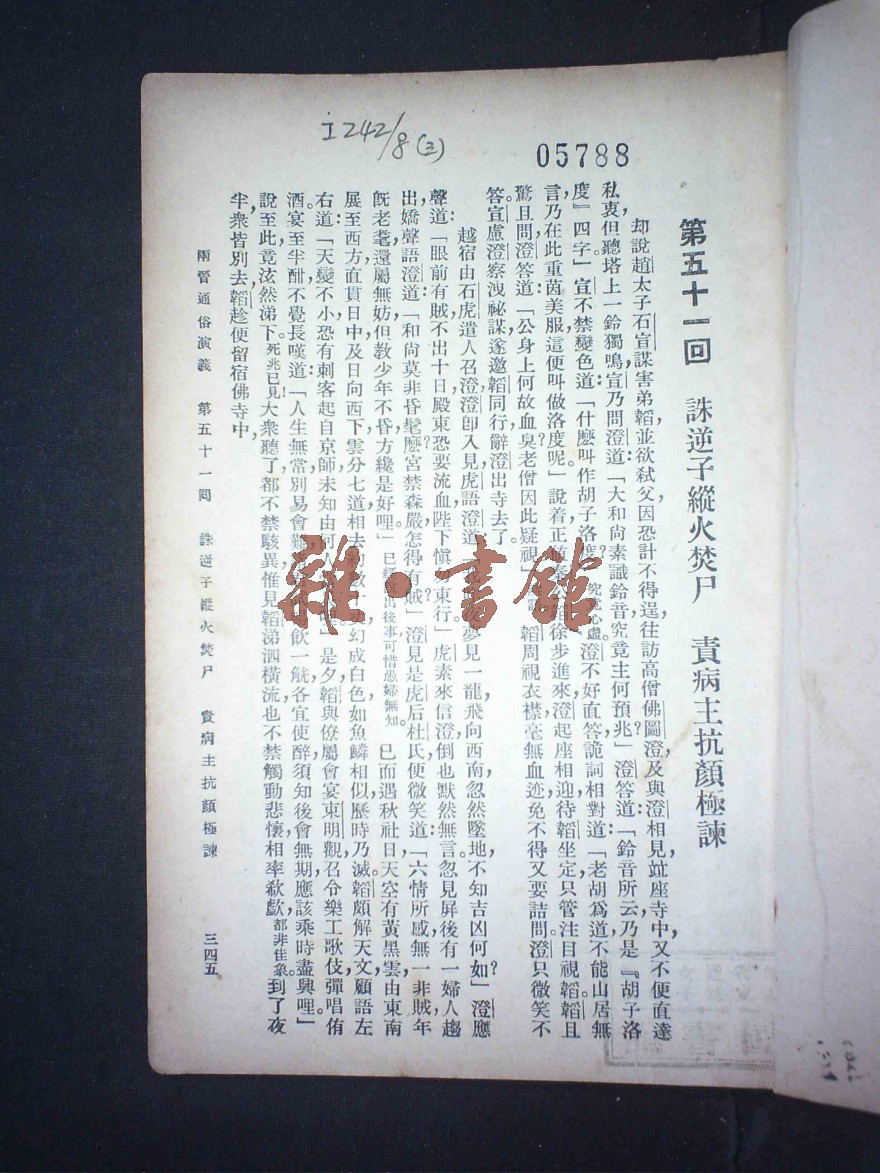 I242/8(三)
05788
第五十一回　誅逆子縱火焚尸　責病主抗顏極諫
却說趙太子石宣謀害弟韜，並欲弒父，因恐計不得逞，往訪高僧佛圖澄，及與澄相見，竝座寺中，又不便直達
私衷，但聽塔上一鈴獨鳴，宣乃問澄道：「大和尚素識鈴音，究竟主何預兆？」澄答道：「鈴音所云，乃是『胡子洛
度』四字。」宣不禁變色道：「什麽叫作胡子洛度？」究竟心虛。澄不好直答，詭詞相對道：「老胡爲道，不能山居無
言，乃在此重茵美服，這便叫做洛度呢。」說着，正徐步進來，澄起座相迎，待韜坐定，只管注目視韜，韜且
驚且問，澄答道：「公身上何故血臭？老僧因此疑視。」韜周視衣襟，毫無血迹，免不得又要詰問，澄只微笑不
答。宣慮澄察洩祕謀，遂邀韜同行，辭澄出寺去了。
越宿由石虎遣人召澄，澄卽入見，虎語澄道：夢見一龍，飛向西南，忽然墜地，不知吉凶何如？」澄應
聲道：「眼前有賊，不出十日，殿東恐要流血，陛下愼東行。」虎素來信澄，倒也默然無言。忽見屏後有一婦人趨
出，嬌聲語澄道：「和尚莫非昏髦麽？宮禁森嚴，怎得有賊？」澄見是虎后杜氏，便微笑道：「六情所感，無一非賊，年
旣老耄，還屬無妨，但教少年不昏，方纔是好哩。」已出後事，可惜愚婦無知。已而遇秋社日，天空有黃黑雲，由東南
展至西方，直貫日中，及日向西下，雲分七道，相去幻成白色，如魚鱗相似，歷時乃滅。韜頗解天文，顧語左
右道：「天變不小，恐有刺客起自京師，未知由何人」是夕，韜與僚屬會宴東明觀，召令樂工歌伎，彈唱侑
酒，宴至半酣，不覺長嘆道：「人生無常，別易會難，飲一觥，各宜使醉，須知後會無期，應該乘時盡興哩。」
說至此，竟泫然涕下。死兆已見！大衆聽了，都不禁駭異，惟見韜涕泗橫流，也不禁觸動悲懷，相率欷歔，都非佳象。到了夜
半，衆皆別去，韜趁便留宿佛寺中，
兩晉通俗演義　第五十一回　誅逆子縱火焚尸　責病主抗顏極諫　三四五
雜·書館